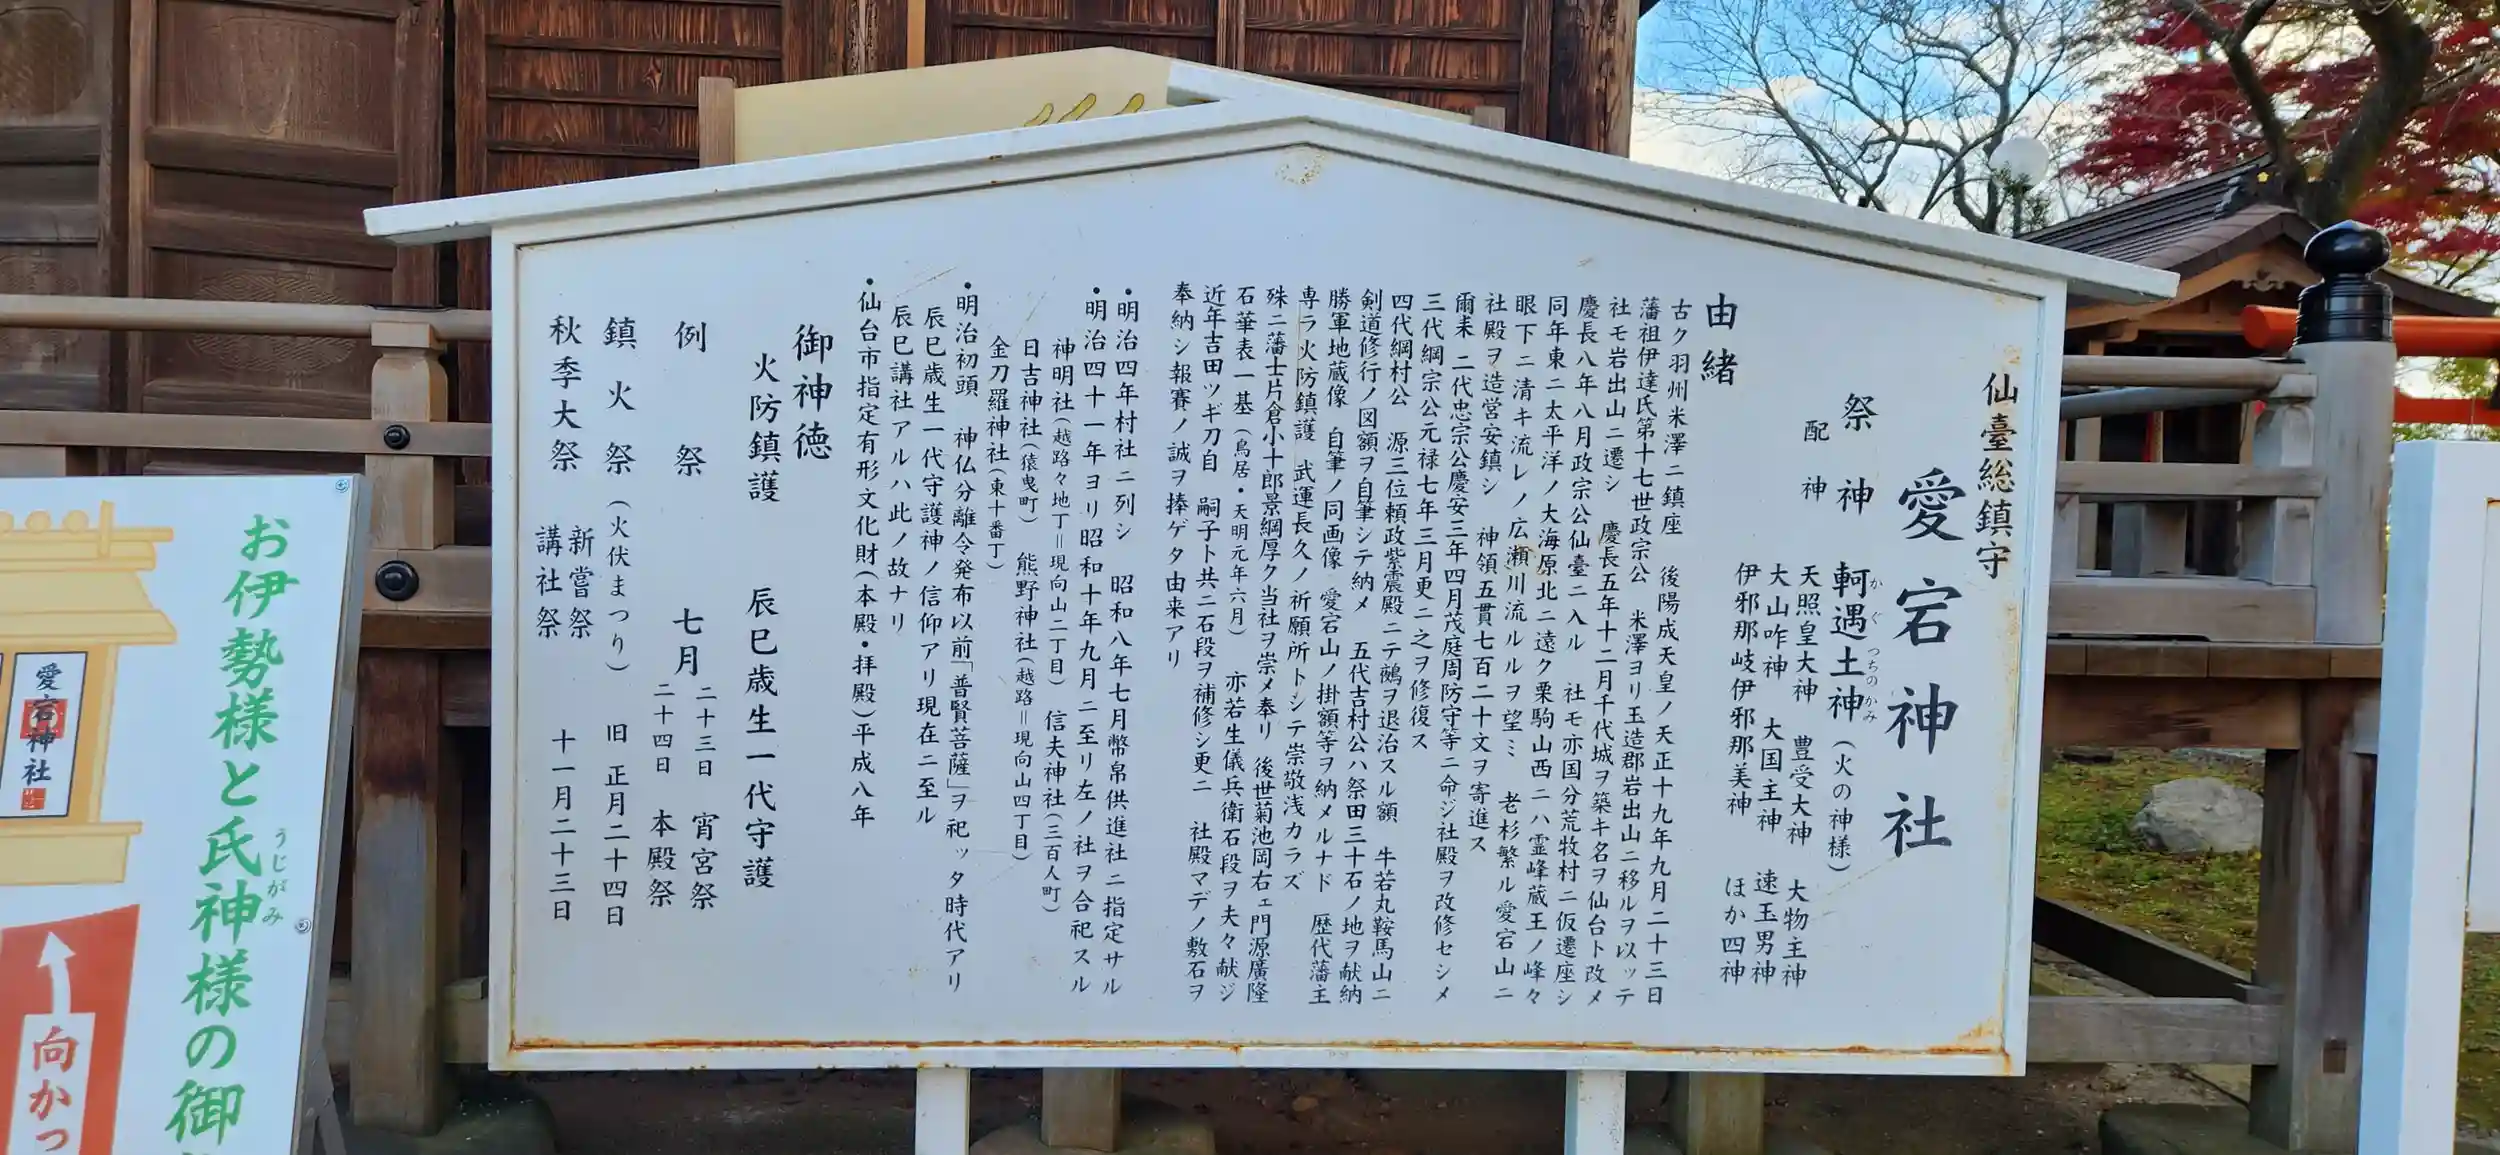 仙臺総鎮守
愛宕神社
祭神 軻遇土神（火の神様）
かぐつちのかみ
配神 天照皇大神 豊受大神 大物主神
大山咋神 大国主神 速玉男神
伊邪那岐伊邪那美神 ほか四神
由緒
古ク羽州米澤ニ鎮座 後陽成天皇ノ天正十九年九月二十三日
藩祖伊達氏第十七世政宗公 米澤ヨリ玉造郡岩出山ニ移ルヲ以ッテ
社モ岩出山ニ遷シ 慶長五年十二月千代城ヲ築キ名ヲ仙台ト改メ
慶長八年八月政宗公仙臺ニ入ル 社モ亦国分荒牧村ニ仮遷座シ
同年東ニ太平洋ノ大海原北ニ遠ク栗駒山西ニハ霊峰蔵王ノ峰々
眼下ニ清キ流レノ広瀬川流ルルヲ望ミ 老杉繁ル愛宕山ニ
社殿ヲ造営安鎮シ 神領五貫七百二十文ヲ寄進ス
爾来 二代忠宗公慶安三年四月茂庭周防守等ニ命ジ社殿ヲ改修セシメ
三代綱宗公元禄七年三月更ニ之ヲ修復ス
四代綱村公 源三位頼政紫震殿ニテ鵺ヲ退治スル額 牛若丸鞍馬山ニ
剣道修行ノ図額ヲ自筆シテ納メ 五代吉村公ハ祭田三十石ノ地ヲ献納
勝軍地蔵像 自筆ノ同画像 愛宕山ノ掛額等ヲ納メルナド 歴代藩主
専ラ火防鎮護 武運長久ノ祈願所トシテ崇敬浅カラズ
殊ニ藩士片倉小十郎景綱厚ク当社ヲ崇メ奉リ 後世菊池岡右ェ門源廣隆
石華表一基（鳥居・天明元年六月） 亦若生儀兵衛石段ヲ夫々献ジ
近年吉田ツギ刀自 嗣子ト共ニ石段ヲ補修シ更ニ 社殿マデノ敷石ヲ
奉納シ報賽ノ誠ヲ捧ゲタ由来アリ
・明治四年村社ニ列シ 昭和八年七月幣帛供進社ニ指定サル
・明治四十一年ヨリ昭和十年九月ニ至リ左ノ社ヲ合祀スル
神明社（越路々地丁＝現向山二丁目） 信夫神社（三百人町）
日吉神社（猿曳町） 熊野神社（越路＝現向山四丁目）
金刀羅神社（東十番丁）
・明治初頭 神仏分離令発布以前「普賢菩薩」ヲ祀ッタ時代アリ
辰巳歳生一代守護神ノ信仰アリ現在ニ至ル
辰巳講社アルハ此ノ故ナリ
・仙台市指定有形文化財（本殿・拝殿）平成八年
御神徳
火防鎮護 辰巳歳生一代守護
例祭 七月 二十三日 宵宮祭
二十四日 本殿祭
鎮火祭（火伏まつり） 旧 正月二十四日
秋季大祭 新嘗祭 講社祭 十一月二十三日
お伊勢様と氏神様の御
うじがみ
愛宕神社
向かっ